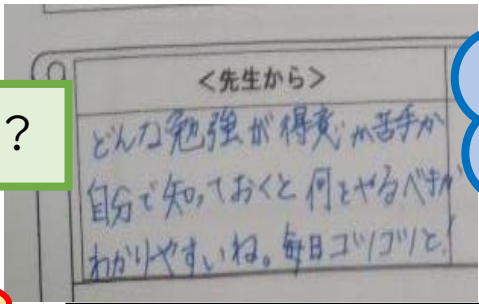 <先生から>
?
どんな勉強が得意か苦手か
自分で知っておくと何をやるべきか
わかりやすいね。毎日コツコツと!